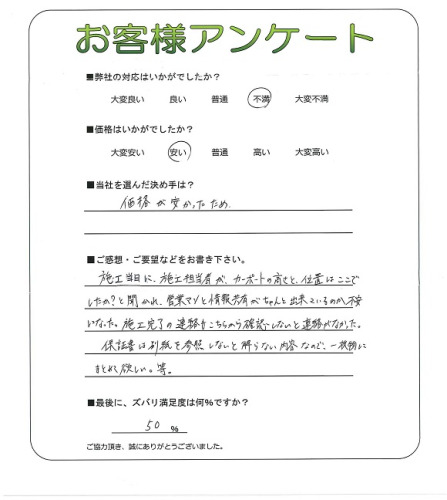 お客様アンケート
■弊社の対応はいかがでしたか？
大変良い 良い 普通 不満 大変不満
■価格はいかがでしたか？
大変安い 安い 普通 高い 大変高い
■当社を選んだ決め手は？
価格が安かったため。
■ご感想・ご要望などをお書き下さい。
施工当日に、施工担当者が、カーポートの高さと、位置はここで
したか？と聞かれ、営業マンと情報共有がちゃんと出来ているのか、不安
になった。施工完了の連絡もこちらから確認しないと連絡がなかった。
保証書は別紙を参照しないと解らない内容なので、一枚物に
まとめて欲しい。等。
■最後に、ズバリ満足度は何%ですか？
50 %
ご協力頂き、誠にありがとうございました。